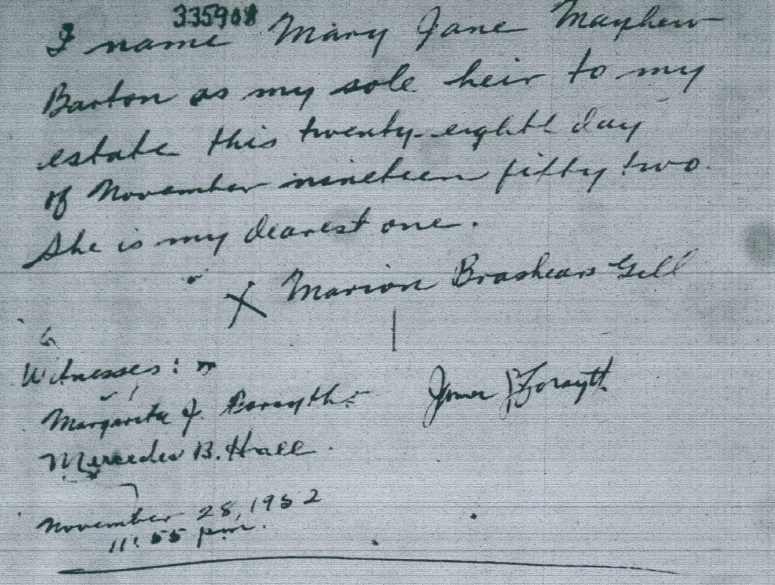 335908
I name Mary Jane Mayhew
Barton as my sole heir to my
estate this twenty-eighth day
of November nineteen fifty two.
She is my dearest one.
X Marion Brashears Gill
Witnesses:
Margarita J. Forsythe James Forsyth
Mercedes B. Hall.
November 28, 1952
11:55 pm.